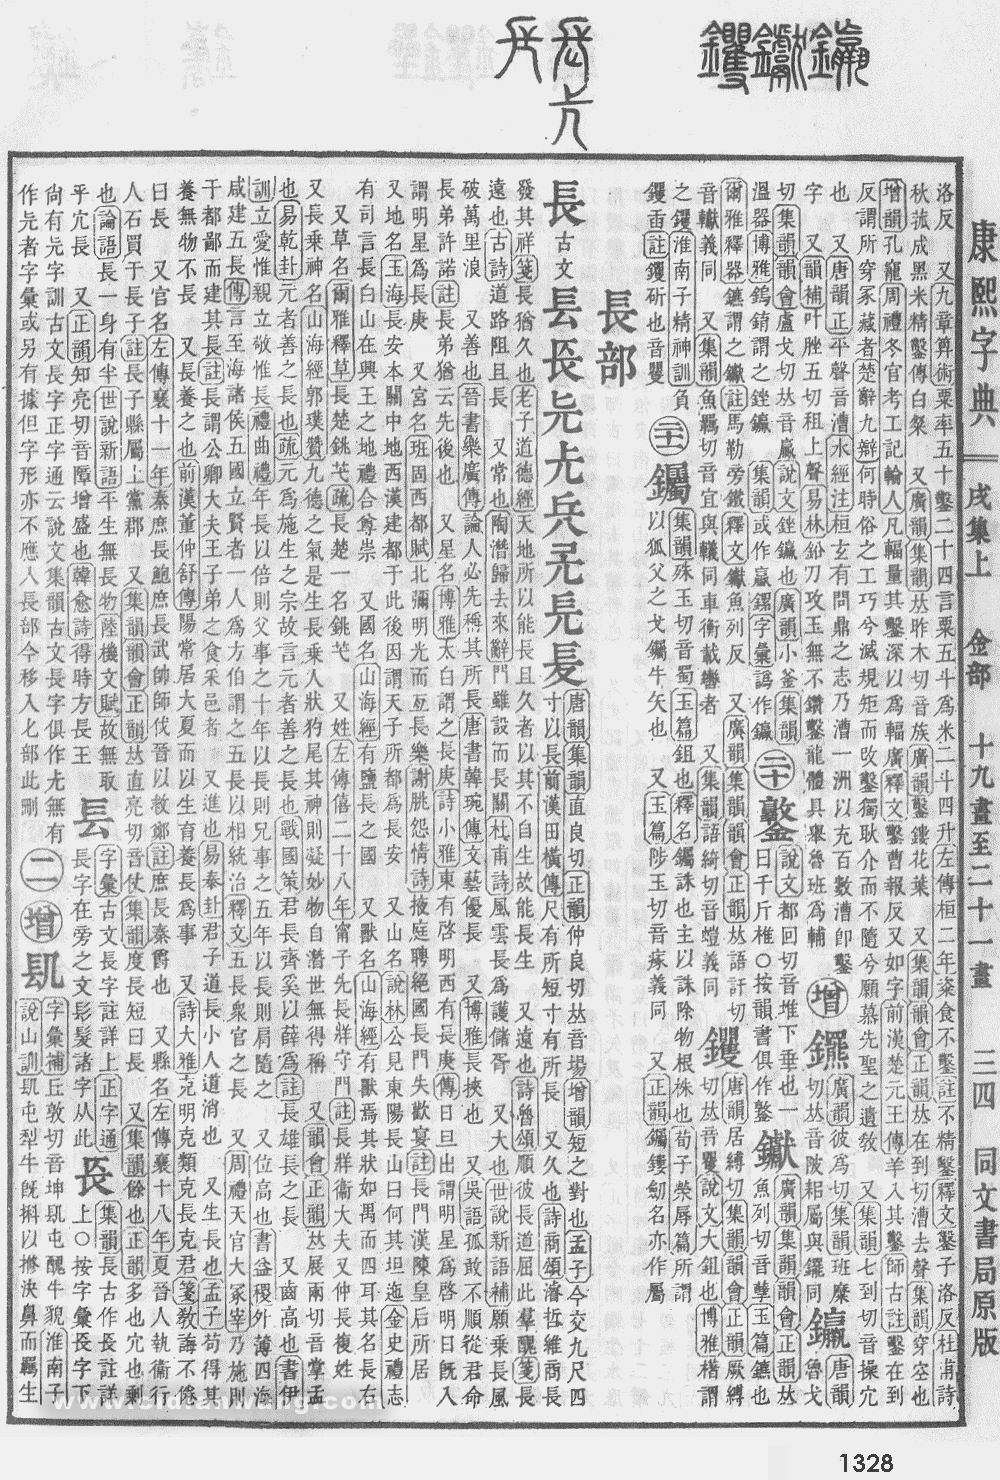 康熙字典 戌集上 金部 十九畫至二十一畫 三四 同文書局原版
洛反 又九章算術粟率五十鑿二十四言粟五斗為米二斗四升左傳桓二年粢食不鑿註不精鑿釋文鑿子洛反杜甫詩
秋菰成黑米精鑿傳白粲 又廣韻集韻𠀤昨木切音族廣韻鑿鏤花葉 又集韻韻會正韻𠀤在到切漕去聲集韻穿空也
增韻孔竉周禮冬官考工記輪人凡輻量其鑿深以為輻廣釋文鑿曹報反又如字前漢楚元王傳羊入其鑿師古註鑿在到
反謂所穿冢藏者楚辭九辯何時俗之工巧兮滅規矩而改鑿獨耿介而不隨兮願慕先聖之遺敎 又集韻七到切音操穴
也 又唐韻正平聲音漕水經注桓玄有問鼎之志乃漕一洲以充百數漕卽鑿
字 又韻補叶脞五切租上聲易林鉛刀攻玉無不鑽鑿龍體具舉魯班為輔
增 廣韻彼為切集韻班糜
切𠀤音陂耜屬與䥯同
鑩 唐韻魯戈
切集韻韻會盧戈切𠀤音臝說文銼鑩也廣韻小釜集韻
溫器博雅鎢錥謂之銼鑩 集韻或作𨰠鏍字彙譌作鑩
二十
鑿 說文都回切音堆下垂也一
曰千斤椎○按韻書俱作𨭖
钀 廣韻集韻韻會正韻𠀤
魚列切音孽玉篇鑣也
爾雅釋器鑣謂之钀註馬勒旁鐵釋文钀魚列反 又廣韻集韻韻會正韻𠀤語訐切
音轙義同 又集韻魚羈切音宜與轙同車衡載轡者 又集韻語綺切音螘義同
钁 唐韻居縛切集韻韻會正韻厥縛
切𠀤音矍說文大鉏也博雅櫡謂
之钁淮南子精神訓負
钁臿註钁斫也音矍
二十一
钃 集韻殊玉切音蜀玉篇鉏也釋名钃誅也主以誅除物根株也荀子榮辱篇所謂
以狐父之戈钃牛矢也 又玉篇陟玉切音瘃義同 又正韻钃鏤劒名亦作屬
長部
長 古文
唐韻集韻直良切正韻仲良切𠀤音場增韻短之對也孟子今交九尺四
寸以長前漢田橫傳尺有所短寸有所長 又久也詩商頌濬哲維商長
發其祥箋長猶久也老子道德經天地所以能長且久者以其不自生故能長生 又遠也詩魯頌順彼長道屈此羣醜箋長
遠也古詩道路阻且長 又常也陶潛歸去來辭門雖設而長關杜甫詩風雲長為護儲胥 又大也世說新語補願乘長風
破萬里浪 又善也晉書樂廣傳論人必先稱其所長唐書韓琬傳文藝優長 又博雅長挾也 又吳語孤敢不順從君命
長弟許諾註長弟猶云先後也 又星名博雅太白謂之長庚詩小雅東有啓明西有長庚傳日旦出謂明星為啓明日旣入
謂明星為長庚 又宮名班固西都賦北彌明光而亙長樂謝朓怨情詩掖庭聘絕國長門失歡宴註長門漢陳皇后所居
又地名玉海長安本關中地西漢建都于此後因謂天子所都為長安 又山名說林公見東陽長山曰何其坦迤金史禮志
有司言長白山在興王之地禮合尊崇 又國名山海經有鹽長之國 又獸名山海經有獸焉其狀如禺而四耳其名長右
又草名爾雅釋草長楚銚芅疏長楚一名銚芅 又姓左傳僖二十八年甯子先長牂守門註長牂衞大夫又仲長複姓
又長乗神名山海經郭璞贊九德之氣是生長乗人狀狗尾其神則凝妙物自潛世無得稱 又韻會正韻𠀤展兩切音掌孟
也易乾卦元者善之長也疏元為施生之宗故言元者善之長也戰國策君長齊奚以薛為註長雄長之長 又齒高也書伊
訓立愛惟親立敬惟長禮曲禮年長以倍則父事之十年以長則兄事之五年以長則肩隨之 又位高也書益稷外薄四海
咸建五長傳言至海諸侯五國立賢者一人為方伯謂之五長以相統治釋文五長衆官之長 又周禮天官大冢宰乃施則
于都鄙而建其長註長謂公卿大夫王子弟之食采邑者 又進也易泰卦君子道長小人道消也 又生長也孟子苟得其
養無物不長 又長養之也前漢董仲舒傳陽常居大夏而以生育養長為事 又詩大雅克明克類克長克君箋敎誨不倦
曰長 又官名左傳襄十一年秦庶長鮑庶長武帥師伐晉以救鄭註庶長秦爵也 又縣名左傳襄十八年夏晉人執衞行
人石買于長子註長子縣屬上黨郡 又集韻韻會正韻𠀤直亮切音仗集韻度長短曰長 又集韻餘也正韻多也冗也剩
也論語長一身有半世說新語平生無長物陸機文賦故無取
乎冗長 又正韻知亮切音障增盛也韓愈詩得時方長王
镸 字彙古文長字註詳上正字通
長字在旁之文髟髮諸字从此
集韻長古作註詳
上○按字彙長字下
尙有字訓古文長字正字通云說文集韻古文長字俱作無有
作者字彙或另有據但字形亦不應入長部今移入匕部此刪
二 增
镹 字彙補丘敦切音坤镹屯醒牛貌淮南子
說山訓镹屯犁牛旣㸰以㹋決鼻而羈生
www.cidianwang.com
1328